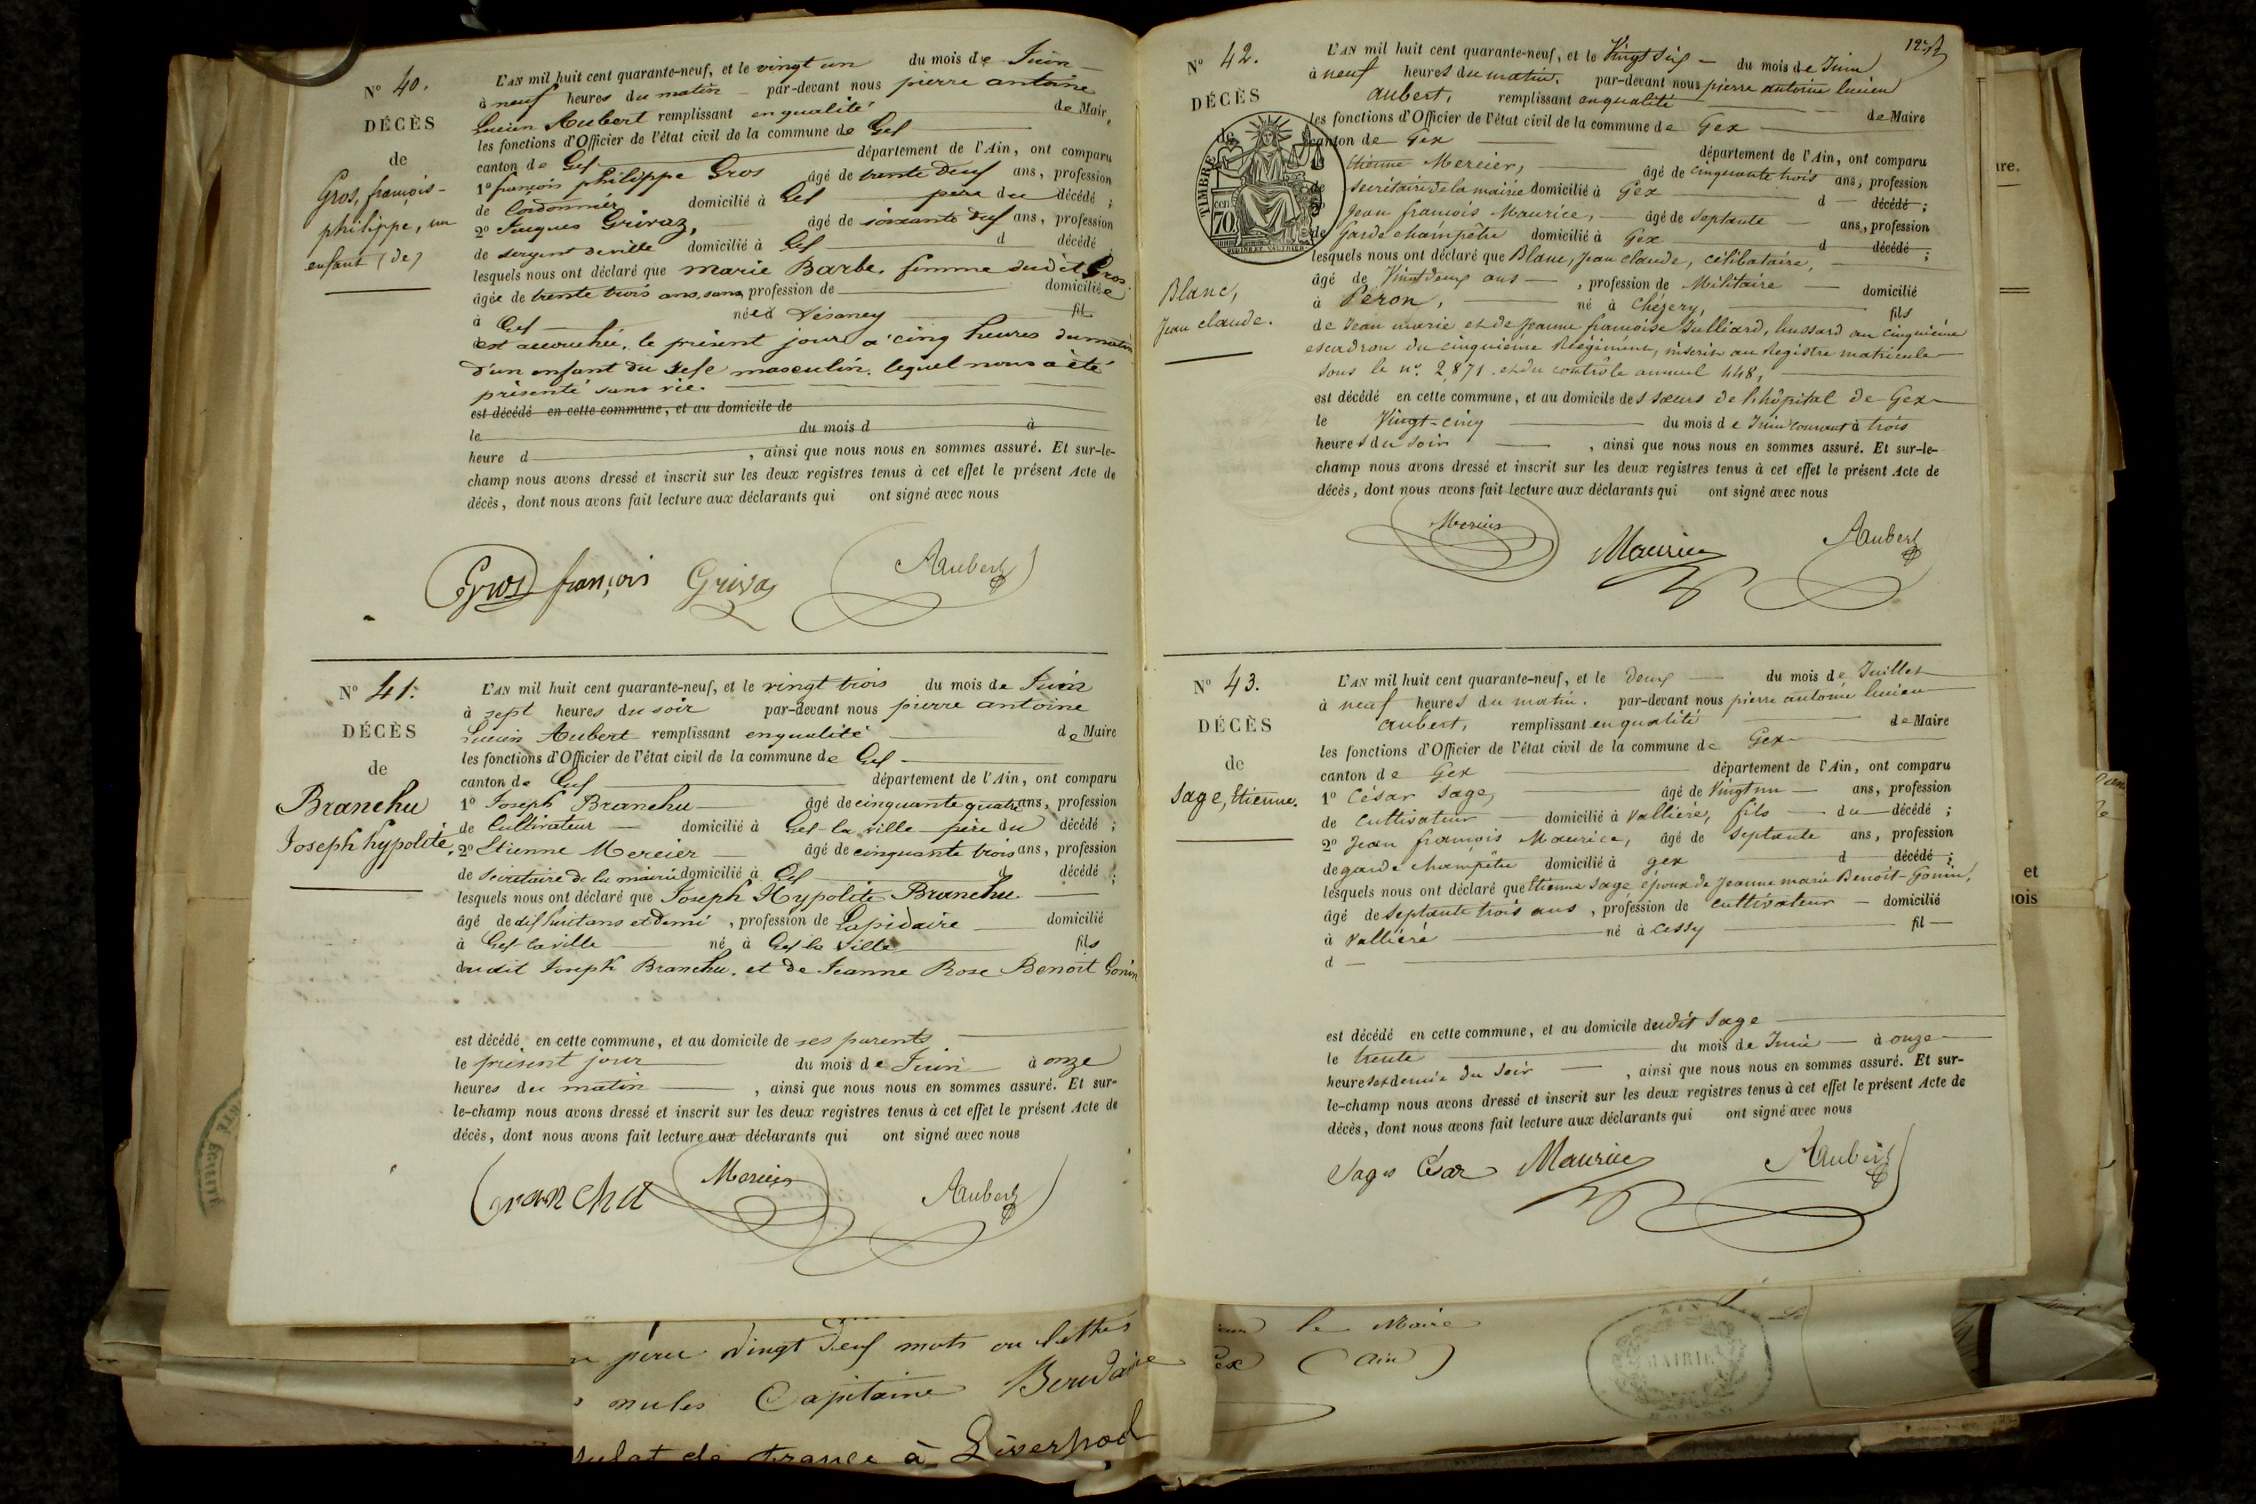 N° 40.
DÉCÈS
de
Gros, françois-
philippe, un
enfant (de)
L'AN mil huit cent quarante-neuf, et le vingt un du mois de Juin
à neuf heures du matin par-devant nous pierre antoine
Lucien Aubert remplissant en qualité de Maire,
les fonctions d'Officier de l'état civil de la commune de Gex
canton de Gex département de l'Ain, ont comparu
1° françois philippe Gros âgé de trente deux ans, profession
de Cordonnier domicilié à Gex père du décédé ;
2° Jacques Grivaz, âgé de soixante dix ans, profession
de sergent de ville domicilié à Gex d décédé ;
lesquels nous ont déclaré que marie Barbe, femme dudit Gros
âgée de trente trois ans, sans profession de domiciliée
à Gex née à Vésancy fil
est accouchée, le présent jour à cinq heures du matin
d'un enfant du sexe masculin, lequel nous a été
présenté sans vie.
est décédé en cette commune, et au domicile de
le du mois d à
heure d , ainsi que nous nous en sommes assuré. Et sur-le-
champ nous avons dressé et inscrit sur les deux registres tenus à cet effet le présent Acte de
décès, dont nous avons fait lecture aux déclarants qui ont signé avec nous
Gros françois Grivaz Aubert
N° 41.
DÉCÈS
de
Branchu
Joseph hypolite.
L'AN mil huit cent quarante-neuf, et le vingt trois du mois de Juin
à sept heures du soir par-devant nous pierre antoine
Lucien Aubert remplissant en qualité de Maire
les fonctions d'Officier de l'état civil de la commune de Gex
canton de Gex département de l'Ain, ont comparu
1° Joseph Branchu âgé de cinquante quatre ans, profession
de Cultivateur domicilié à Gex-la ville père du décédé ;
2° Etienne Mercier âgé de cinquante trois ans, profession
de secrétaire de la mairie domicilié à Gex d décédé ;
lesquels nous ont déclaré que Joseph Hypolite Branchu
âgé de dix huit ans et demi , profession de Lapidaire domicilié
à Gex la ville né à Gex la ville fils
dudit Joseph Branchu, et de Jeanne Rose Benoit Gonin
est décédé en cette commune, et au domicile de ses parents
le présent jour du mois de Juin à onze
heures du matin , ainsi que nous nous en sommes assuré. Et sur-
le-champ nous avons dressé et inscrit sur les deux registres tenus à cet effet le présent Acte de
décès, dont nous avons fait lecture aux déclarants qui ont signé avec nous
Branchu Mercier Aubert
N° 42.
DÉCÈS
TIMBRE
70
Blanc,
Jean claude.
L'AN mil huit cent quarante-neuf, et le Vingt six du mois de Juin
à neuf heures du matin, par-devant nous pierre antoine lucien
aubert, remplissant en qualité de Maire
les fonctions d'Officier de l'état civil de la commune de Gex
canton de Gex département de l'Ain, ont comparu
Etienne Mercier, âgé de cinquante trois ans, profession
secrétaire de la mairie domicilié à Gex d décédé ;
Jean françois Maurice, âgé de septante ans, profession
de Garde champêtre domicilié à Gex d décédé ;
lesquels nous ont déclaré que Blanc, Jean claude, célibataire,
âgé de Vingt deux ans , profession de Militaire domicilié
à Péron, né à Chézery, fils
de Jean marie et de Jeanne françoise Julliard, hussard au cinquième
escadron du cinquième Régiment, inscrit au Registre matricule
sous le n°. 2,871. et du contrôle annuel 448,
est décédé en cette commune, et au domicile des sœurs de l'hôpital de Gex
le Vingt-cinq du mois de Juin courant à trois
heures du soir , ainsi que nous nous en sommes assuré. Et sur-le-
champ nous avons dressé et inscrit sur les deux registres tenus à cet effet le présent Acte de
décès, dont nous avons fait lecture aux déclarants qui ont signé avec nous
Mercier Maurice Aubert
N° 43.
DÉCÈS
de
Sage, Etienne.
L'AN mil huit cent quarante-neuf, et le Deux du mois de Juillet
à neuf heures du matin. par-devant nous pierre antoine lucien
aubert, remplissant en qualité de Maire
les fonctions d'Officier de l'état civil de la commune de Gex
canton de Gex département de l'Ain, ont comparu
1° César Sage, âgé de Vingt un ans, profession
de cultivateur domicilié à Vallière, fils du décédé ;
2° Jean françois Maurice, âgé de septante ans, profession
de garde champêtre domicilié à gex d décédé ;
lesquels nous ont déclaré que Etienne Sage, époux de Jeanne marie Benoit-Gonin,
âgé de septante trois ans , profession de cultivateur domicilié
à Valliéré né à Cessy fil
d
est décédé en cette commune, et au domicile dudit Sage
le trente du mois de Juin à onze
heures et demie du soir , ainsi que nous nous en sommes assuré. Et sur-
le-champ nous avons dressé et inscrit sur les deux registres tenus à cet effet le présent Acte de
décès, dont nous avons fait lecture aux déclarants qui ont signé avec nous
Sage César Maurice Aubert
vingt deux mots ou lettres
nules Capitaine
de france à Liverpool
le Maire
Gex (Ain)
MAIRIE
et